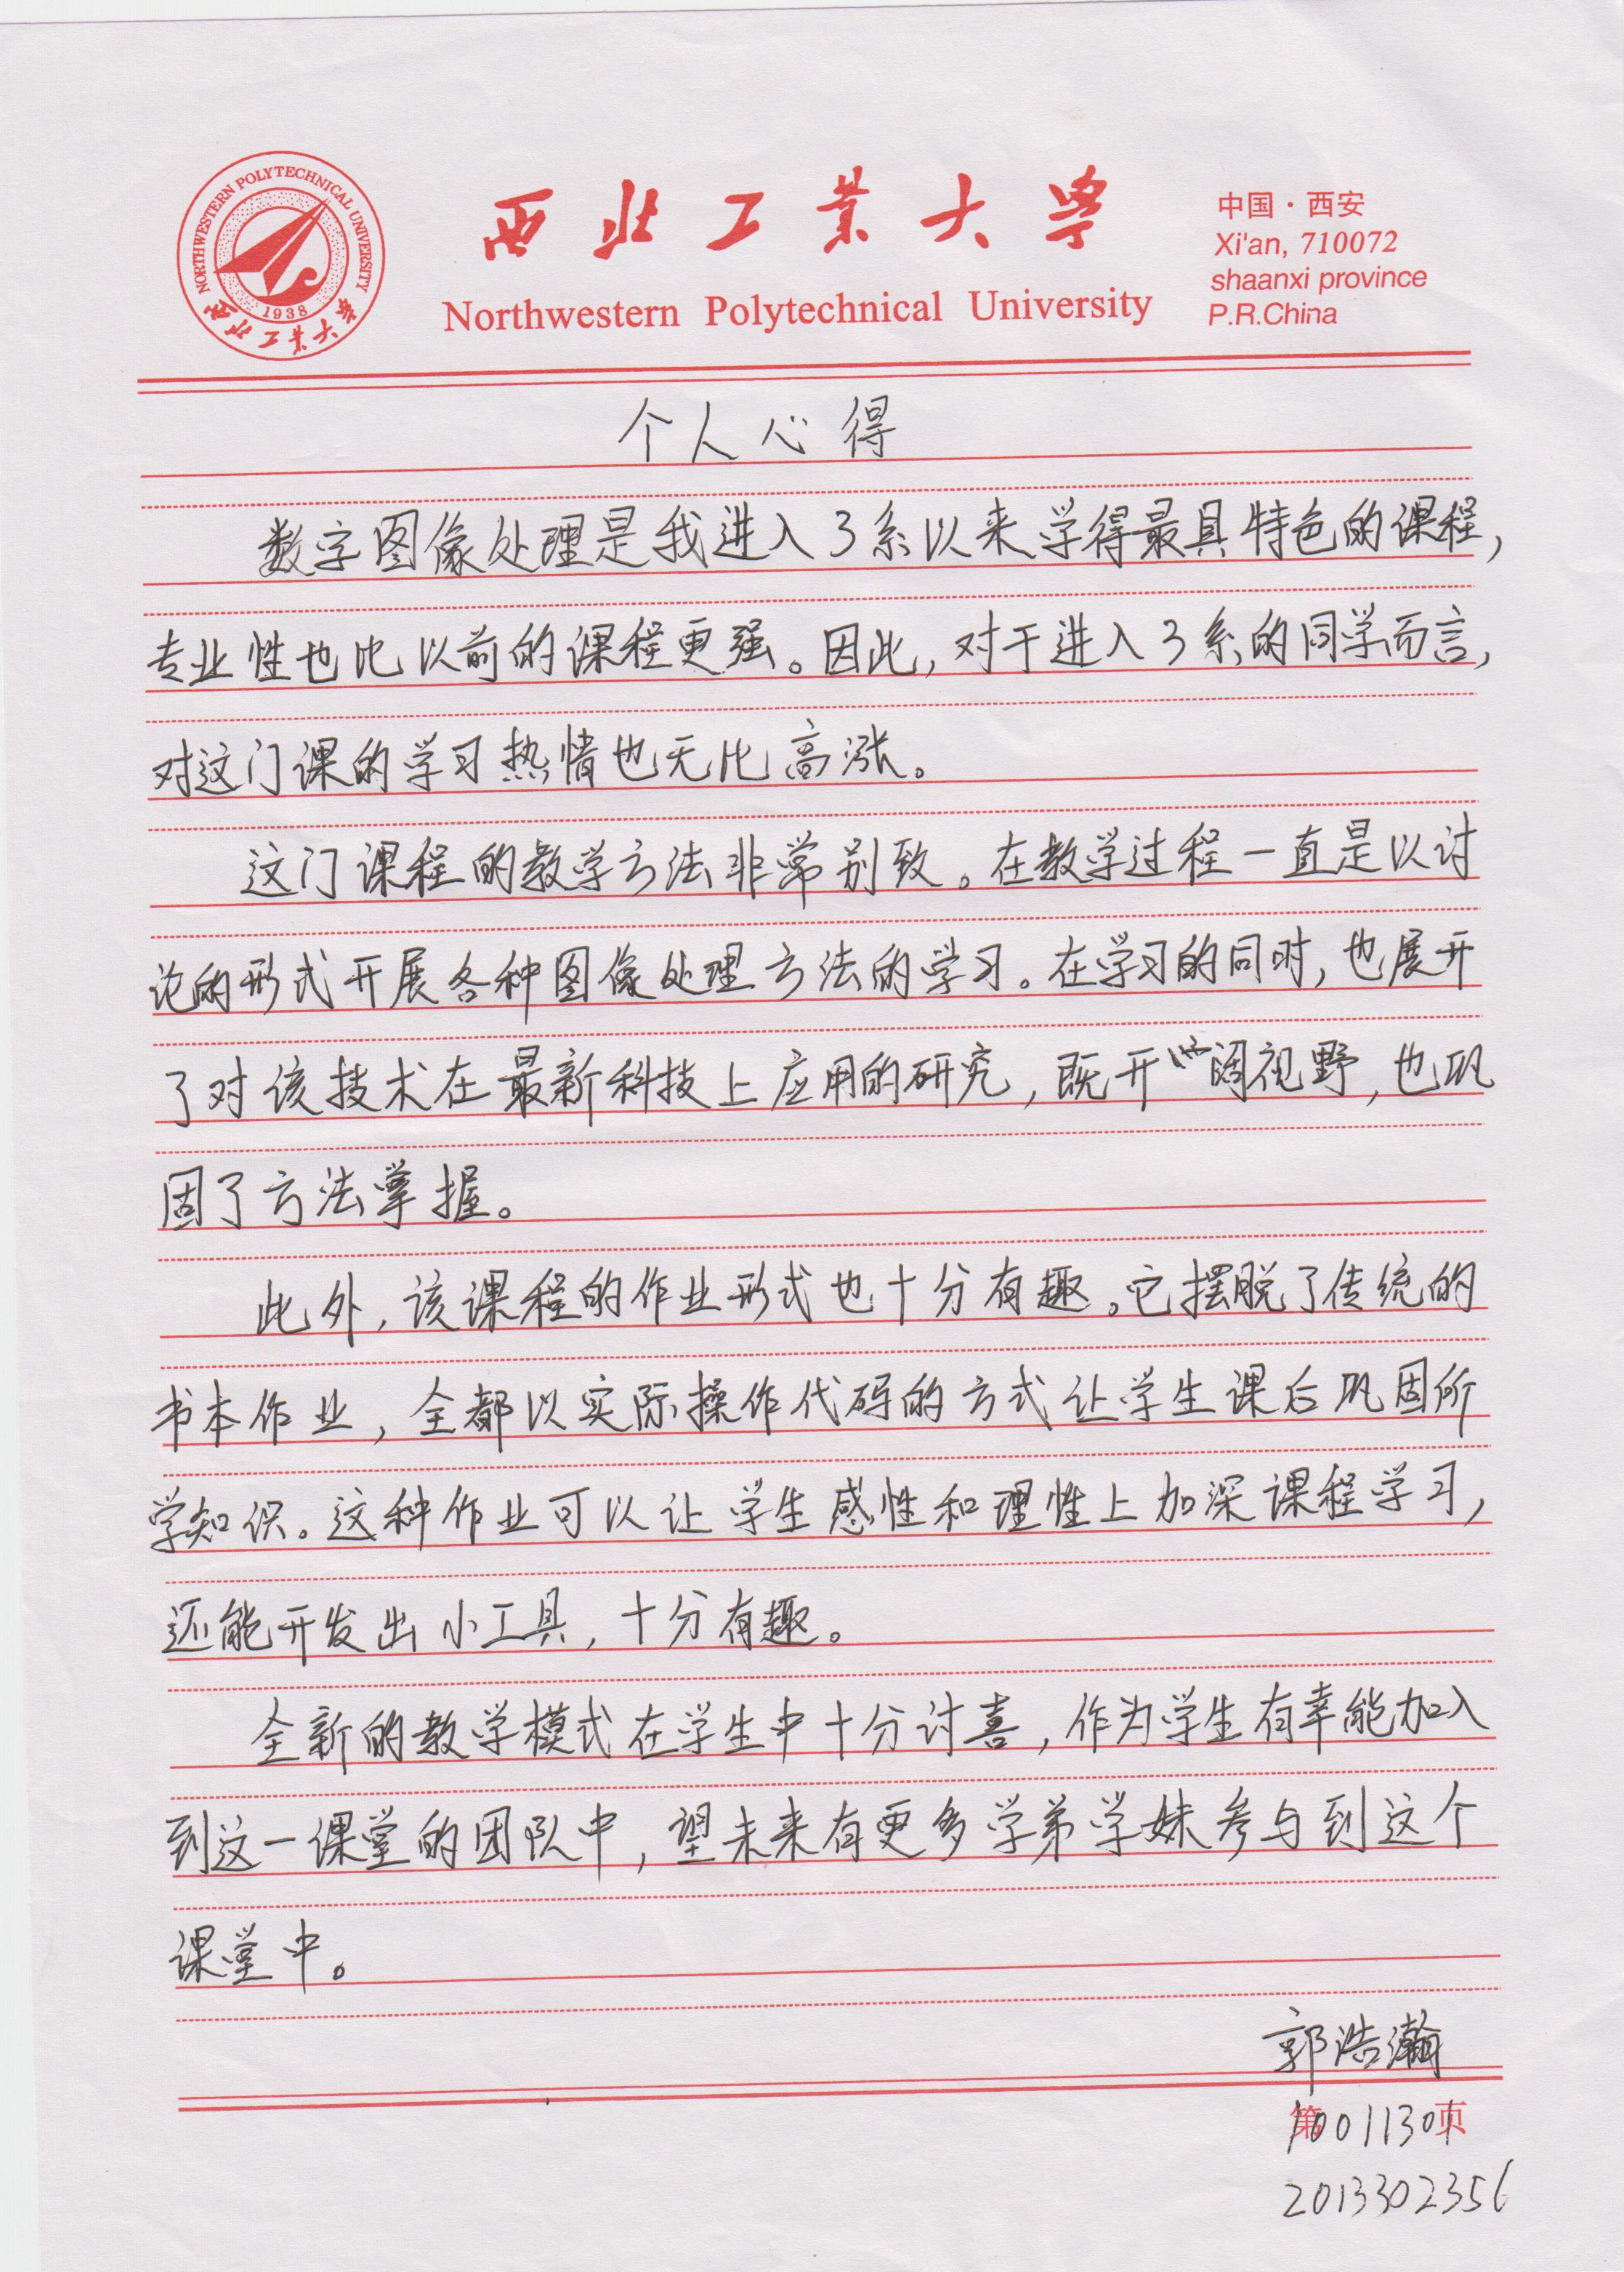 NORTHWESTERN POLYTECHNICAL UNIVERSITY
1938
西北工业大学
西北工业大学
Northwestern Polytechnical University
中国·西安
Xi'an, 710072
shaanxi province
P.R.China
个人心得
数字图像处理是我进入3系以来学得最具特色的课程,
专业性也比以前的课程更强。因此,对于进入3系的同学而言,
对这门课的学习热情也无比高涨。
这门课程的教学方法非常别致。在教学过程一直是以讨
论的形式开展各种图像处理方法的学习。在学习的同时,也展开
了对该技术在最新科技上应用的研究,既开阔视野,也巩
固了方法掌握。
此外,该课程的作业形式也十分有趣。它摆脱了传统的
书本作业,全都以实际操作代码的方式让学生课后巩固所
学知识。这种作业可以让学生感性和理性上加深课程学习,
还能开发出小工具,十分有趣。
全新的教学模式在学生中十分讨喜,作为学生有幸能加入
到这一课堂的团队中,望未来有更多学弟学妹参与到这个
课堂中。
郭浩瀚
第 页
10011301
2013302356